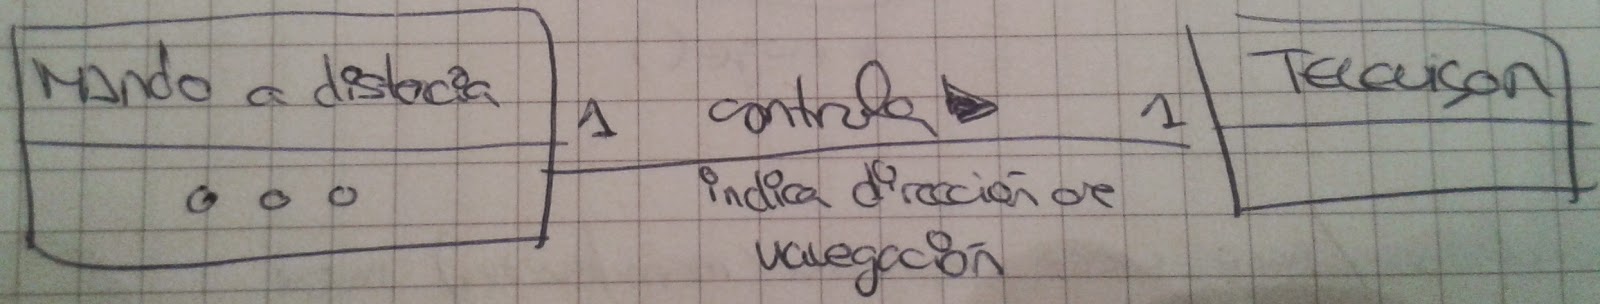 Mando a distacia
1 controla 1
Televison
indica dirección de
navegación